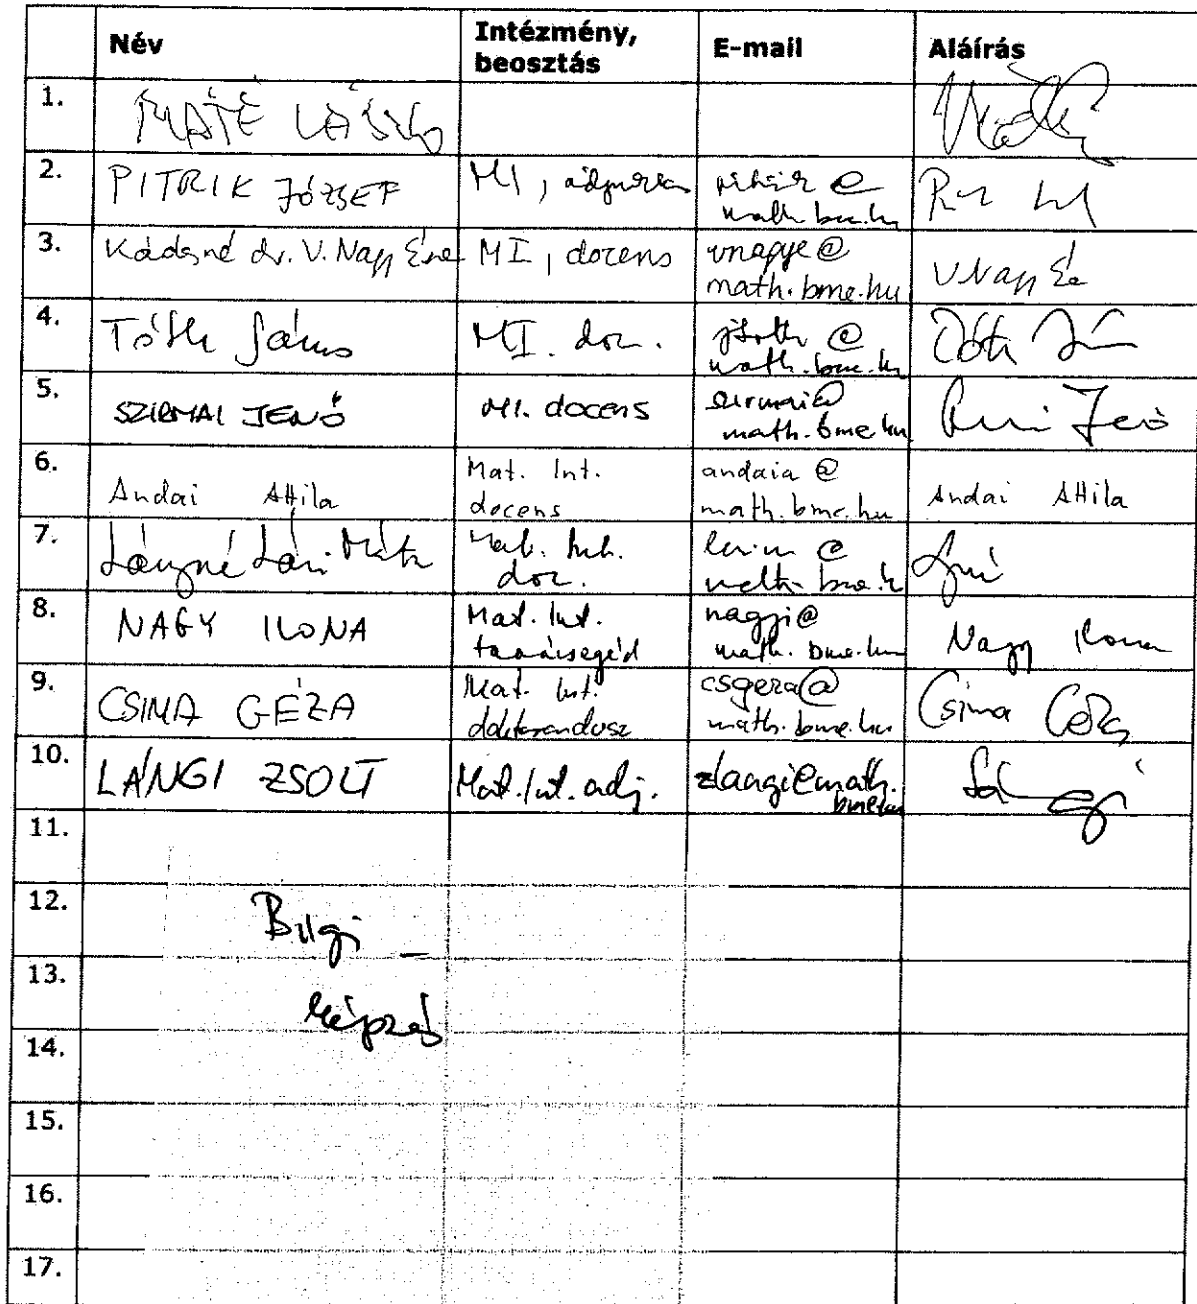 Név Intézmény, beosztás E-mail Aláírás
1. MÁTÉ LÁSZLÓ
2. PITRIK JÓZSEF MI, adjunktus pitrik @ math.bme.hu
3. Kádasné dr. V. Nagy Éva MI, docens vnagye@ math.bme.hu V Nagy Éva
4. Tóth János MI. doc. jtoth @ math.bme.hu Tóth János
5. SZIRMAI JENŐ MI. docens szirmai@ math.bme.hu
6. Andai Attila Mat. Int. docens andaia @ math.bme.hu Andai Attila
7. Mat. Int. doc. @ math.bme.hu
8. NAGY ILONA Mat. Int. tanársegéd nagyi@ math.bme.hu Nagy Ilona
9. CSIMA GÉZA Mat. Int. doktorandusz csgeza@ math.bme.hu Csima Géza
10. LÁNGI ZSOLT Mat. Int. adj. zlangi@math. bme.hu Lángi
11.
12.
13.
képzés
14.
15.
16.
17.